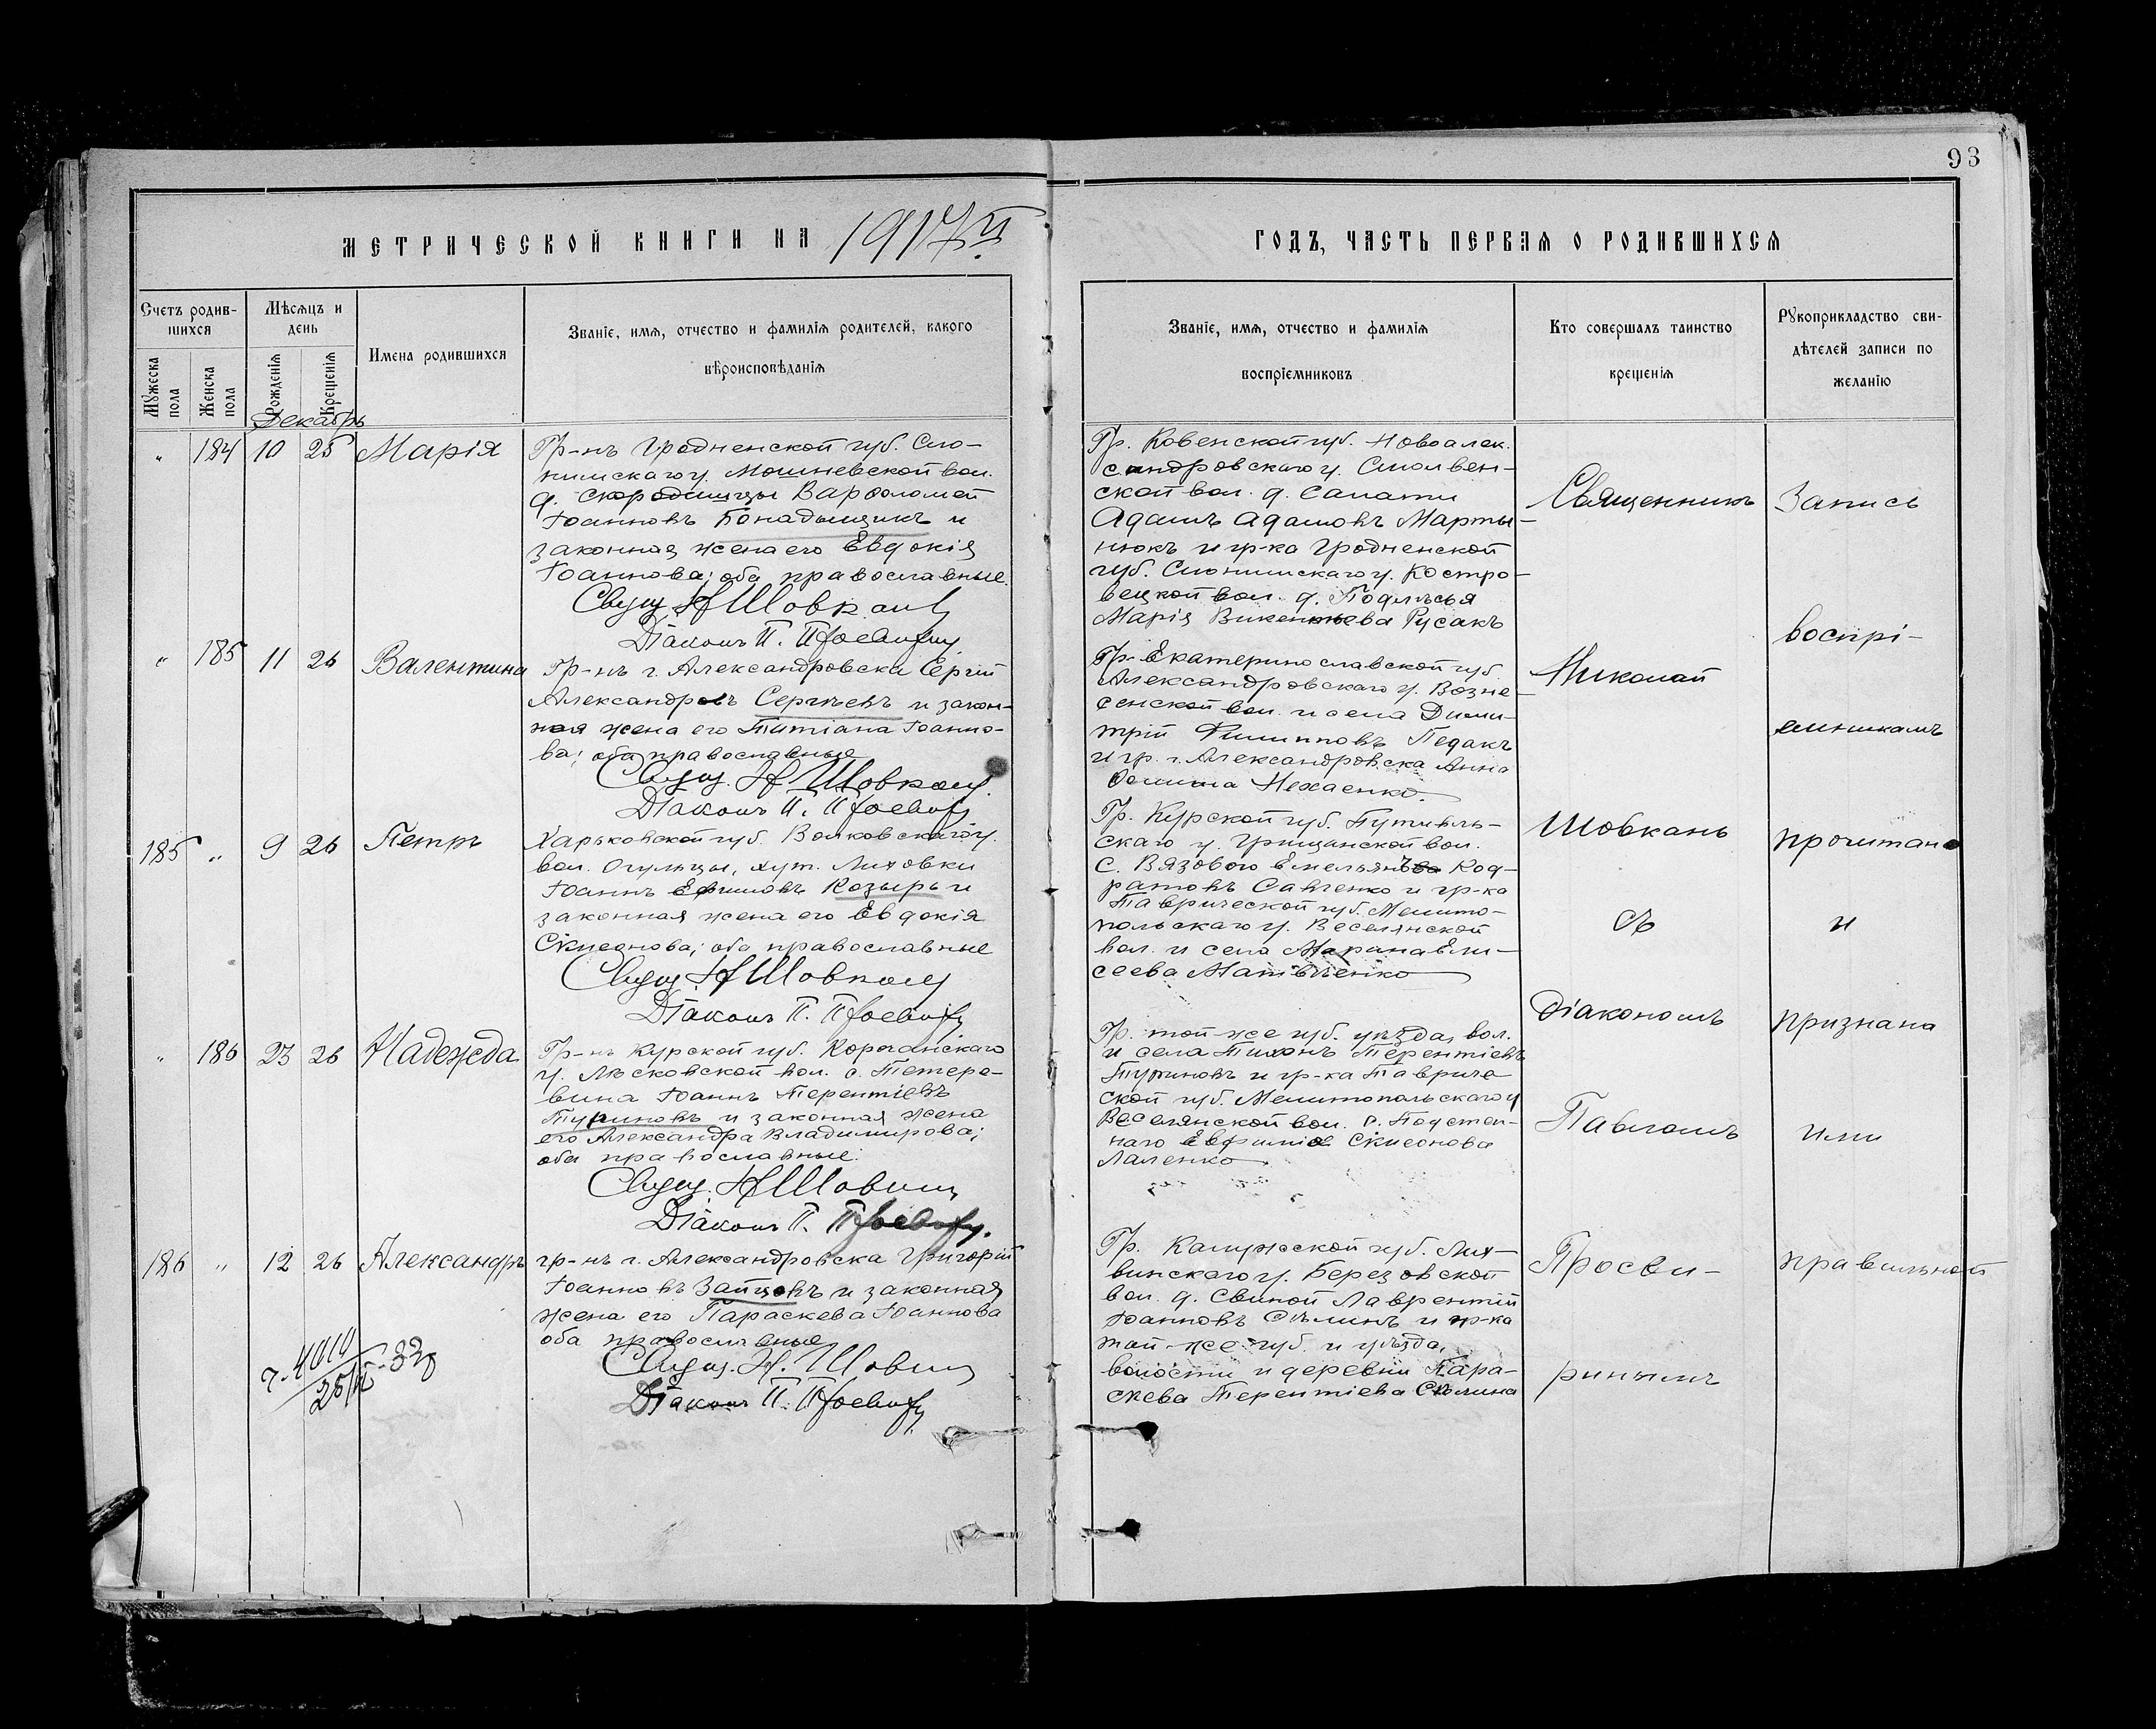 93
МЕТРИЧЕСКОЙ КНИГИ НА 1917й
ГОДЪ, ЧАСТЬ ПЕРВАЯ О РОДИВШИХСЯ
Счетъ родив-
шихся
Мужеска пола
Женска пола
Мѣсяцъ и
день
Рожденія
Крещенія
Имена родившихся
Званіе, имя, отчество и фамилія родителей, какого
вѣроисповѣданія
Званіе, имя, отчество и фамилія
воспріемниковъ
Кто совершалъ таинство
крещенія
Рукоприкладство сви-
дѣтелей записи по
желанію
Декабрь
" 184 10 25 Марія
Гр-нъ Гродненской губ. Сло-
нимскаго у. вол.
д. Варѳоломей
Іоанновъ Бонадыщикъ и
законная жена его Евдокія
Іоаннова; оба православные.
Свящ. Н Шовкань
Діаконъ П.
Гр. Ковенской губ. Новоалек.
сандровскаго у. Смолвен-
ской вол. д. Салати
Адамъ Адамовъ Марты-
нюкъ и гр-ка Гродненской
губ. Слонимскаго у. Костро-
вецкой вол. д. Подлѣсья
Марія Викентьева Русакъ
" 185 11 26 Валентина
Гр-нъ г. Александровска Сергій
Александровъ Сергѣевъ и закон-
ная жена его Татіана Іоанно-
ва; оба православные
Свящ. Н Шовкань.
Діаконъ П.
Гр. Екатеринославской губ.
Александровскаго у. Возне-
сенской вол. и села Дими-
трій Филипповъ Педакъ
и гр. г. Александровска Анна
Ѳомина Нехаенко.
185 " 9 26 Петръ
Харьковской губ. Волковскаго у.
вол. Огульцы, хут. Ляховки
Іоаннъ Ефимовъ Козырь и
законная жена его Евдокія
Симеонова; оба православные
Свящ. Н Шовкань
Діаконъ П.
Гр. Курской губ. Путивль-
скаго у. Грищанской вол.
с. Вязового Емельянъ Код-
ратовъ Савченко и гр-ка
Таврической губ. Мелито-
польскаго у. Веселянской
вол. и села Марина Ели-
сеева Матвѣенко
" 186 23 26 Надежда
Гр-нъ Курской губ. Корочанскаго
у. Лѣсковской вол. с. Тетере-
вина Іоаннъ Терентіевъ
и законная жена
его Александра Владимирова;
оба православные.
Свящ. Н Шовкань
Діаконъ П.
Гр. той-же губ. уѣзда, вол.
и села Тихонъ Терентіевъ
и гр-ка Тавриче
ской губ. Мелитопольскаго у
Веселянской вол. с. Подстеп-
наго Евфимія Симеонова
Лаленко
186 " 12 26 Александръ
гр-нъ г. Александровска Григорій
Іоанновъ Зайцевъ и законная
жена его Параскева Іоаннова
оба православные
Свящ. Н. Шовкань
Діаконъ П.
Гр. Калужской губ. Лих-
винскаго у. Березовской
вол. д. Свиной Лаврентій
Іоанновъ Сѣлинъ и гр-ка
той-же губ. и уѣзда,
волости и деревни Пара-
скева Терентіева Сѣлина
Священникъ
Николай
Шовкань
съ
діакономъ
Павломъ
Просви-
ринымъ
Запись
воспрі-
емникамъ
прочитана
и
признана
ими
правильной